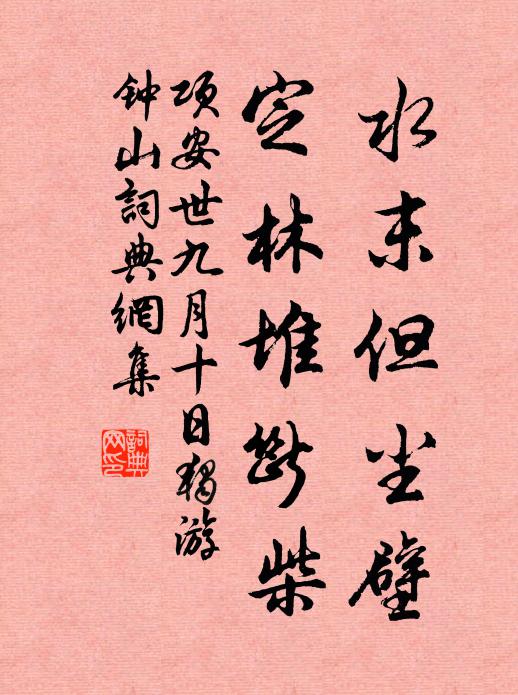 水末但尘壁
定林堆断柴
项安世九月十日独游
钟山詞典網集
詞典
网印